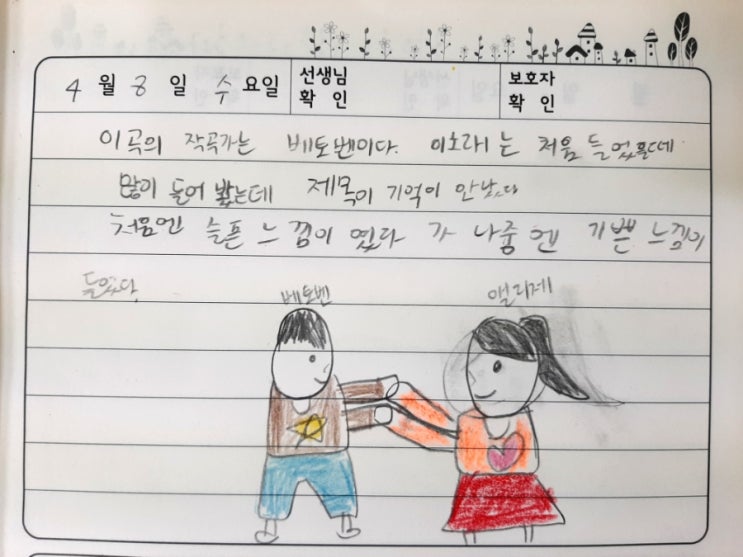 4 월 8 일 수 요일 선생님 확 인 보호자 확 인
이곡의 작곡가는 베토벤이다. 이소리는 처음 들었을때
많이 들어 봤는데 제목이 기억이 안났다
처음엔 슬픈 느낌이 였다 가 나중 엔 기쁜 느낌이
들었다.
베토벤 앨리제